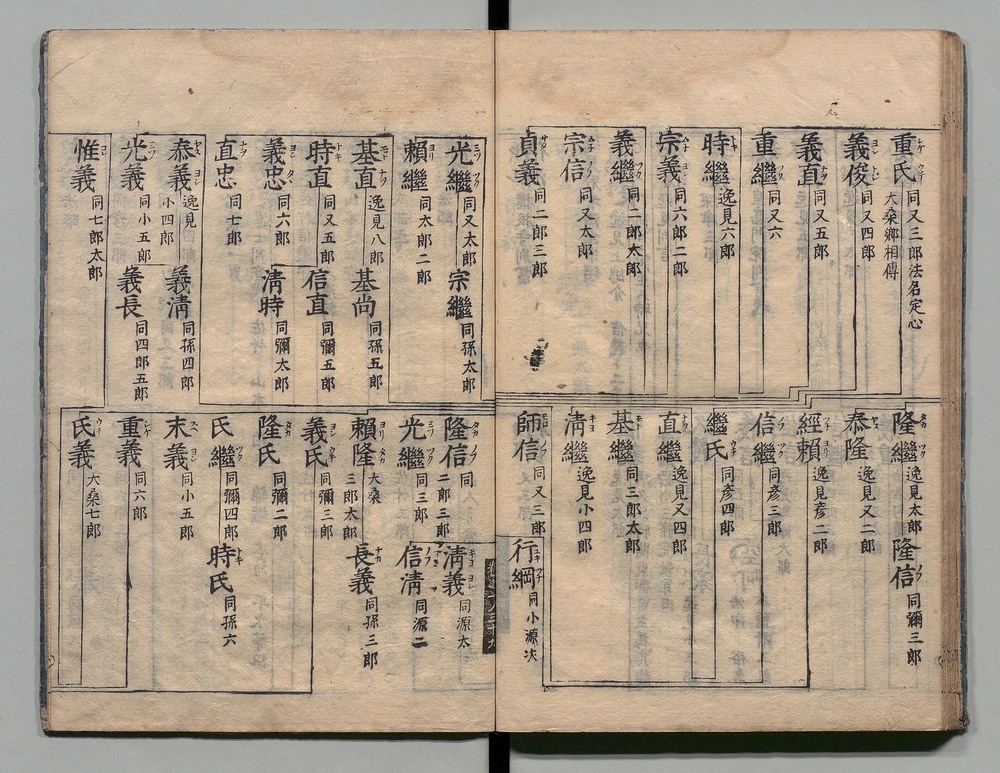 重氏 同又三郎法名定心
大桑鄉相傳
義俊 同又四郎
義直 同又五郎
重繼 同又六
時繼 逸見六郎
宗義 同六郎二郎
義繼 同二郎太郎
宗信 同又太郎
貞義 同二郎三郎
隆繼 逸見太郎
隆信 同彌三郎
泰隆 逸見又二郎
經賴 逸見彦二郎
信繼 同彦三郎
繼氏 同彦四郎
直繼 逸見又四郎
基繼 同三郎太郎
淸繼 逸見小四郎
師信 同又三郎
行綱 同小源次
光繼 同又太郎
宗繼 同孫太郎
賴繼 同太郎二郎
基直 逸見八郎
基尚 同孫五郎
時直 同又五郎
信直 同彌五郎
義忠 同六郎
淸時 同彌太郎
直忠 同七郎
泰義 逸見小四郎
義淸 同孫四郎
光義 同小五郎
義長 同四郎五郎
惟義 同七郎太郎
隆信 同二郎三郎
淸義 同源太
光繼 同三郎
信淸 同源二
賴隆 大桑三郎太郎
長義 同孫三郎
義氏 同彌三郎
隆氏 同彌二郎
氏繼 同彌四郎
時氏 同孫六
末義 同小五郎
重義 同六郎
氏義 大桑七郎